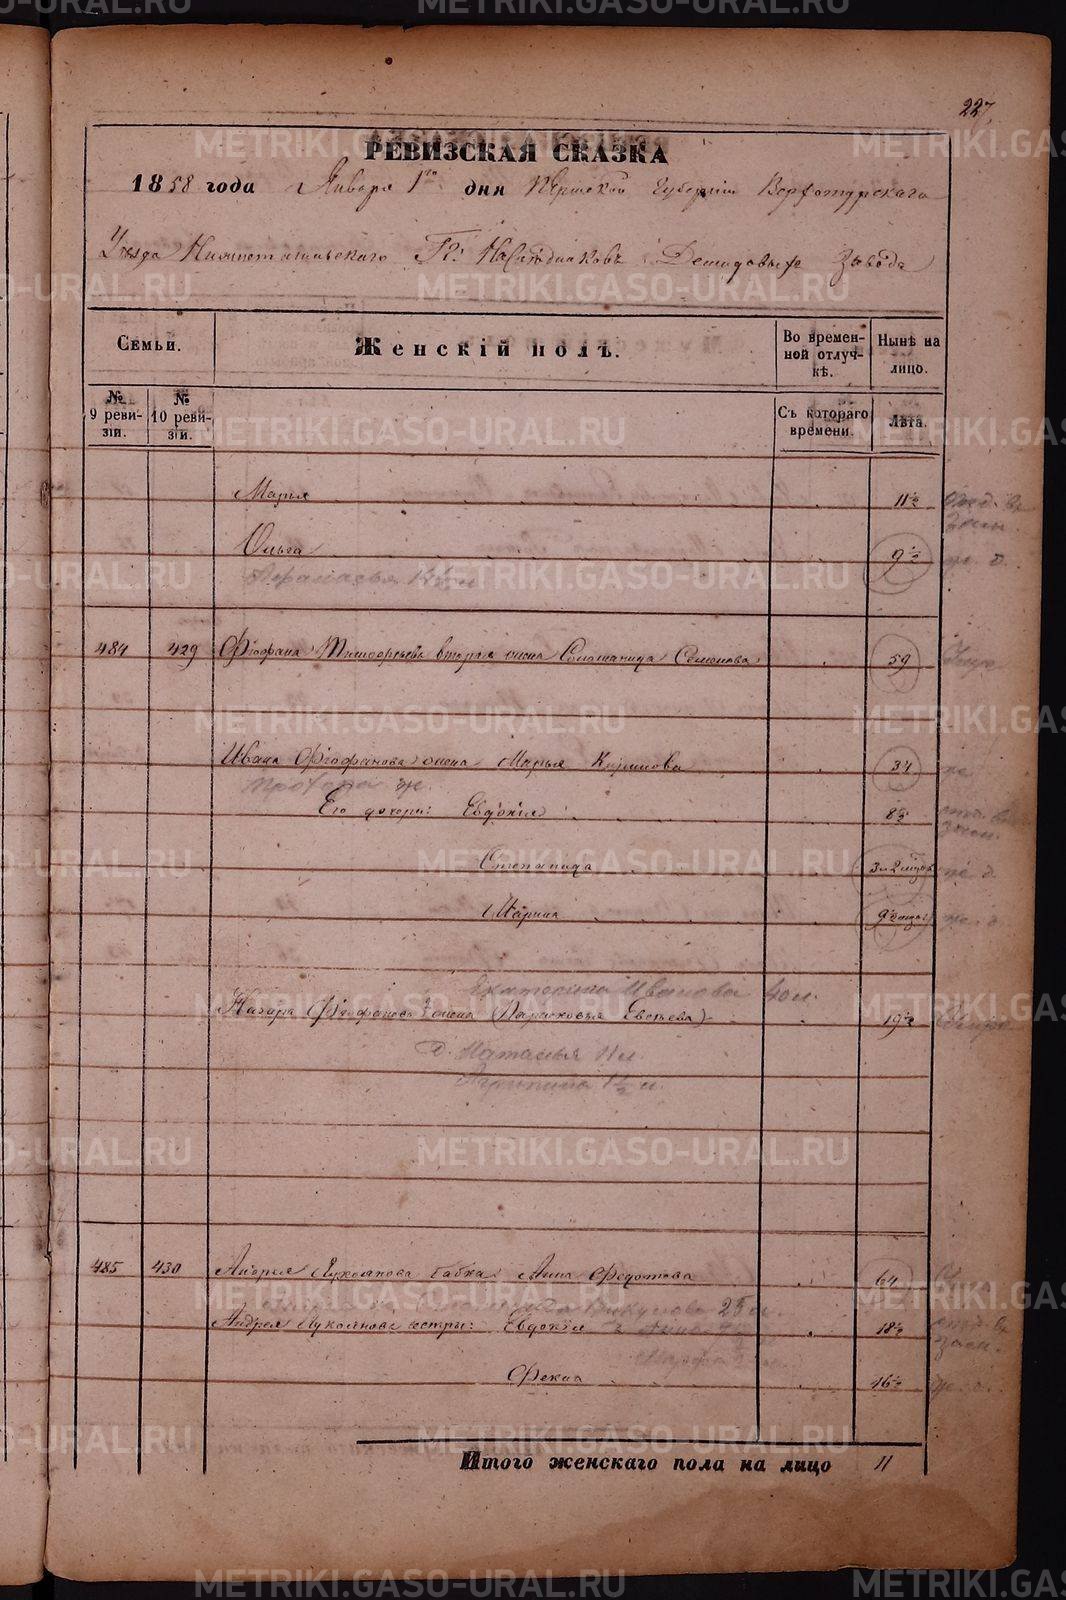 227
РЕВИЗСКАЯ СКАЗКА
1858 года Января 1го дня Пермской Губерніи Верхотурскаго
Уѣзда Нижнетагильскаго Гг: Наслѣдниковъ Демидовыхъ Завода
Семьи. Женскій полъ. Во временной отлучкѣ. Нынѣ на лицо.
№ 9 ревизіи. № 10 ревизіи. Съ котораго времени. Лѣта.
Марья 11½
Ольга 9½ ж. д.
484 429 Феофана Тимофеева вторая жена Соломанида Семенова 59
Ивана Феофанова жена Марья Климова 34
Его дочери: Евдокія 8½
Степанида 3 и 2 мѣсяц
Марина
Екатерина Иванова 40 л.
Назара Феофанова жена (Парасковья Евсѣева) 19½
д. Наталья 11 л.
Агрипина 1½ л.
485 430 Андрея Лукоянова бабка Анна Федотова 64
Викулова 25 л.
Андрея Лукоянова сестры: Евдокія 18½
Фекла 16½
Итого женскаго пола на лицо 11
METRIKI.GASO-URAL.RU